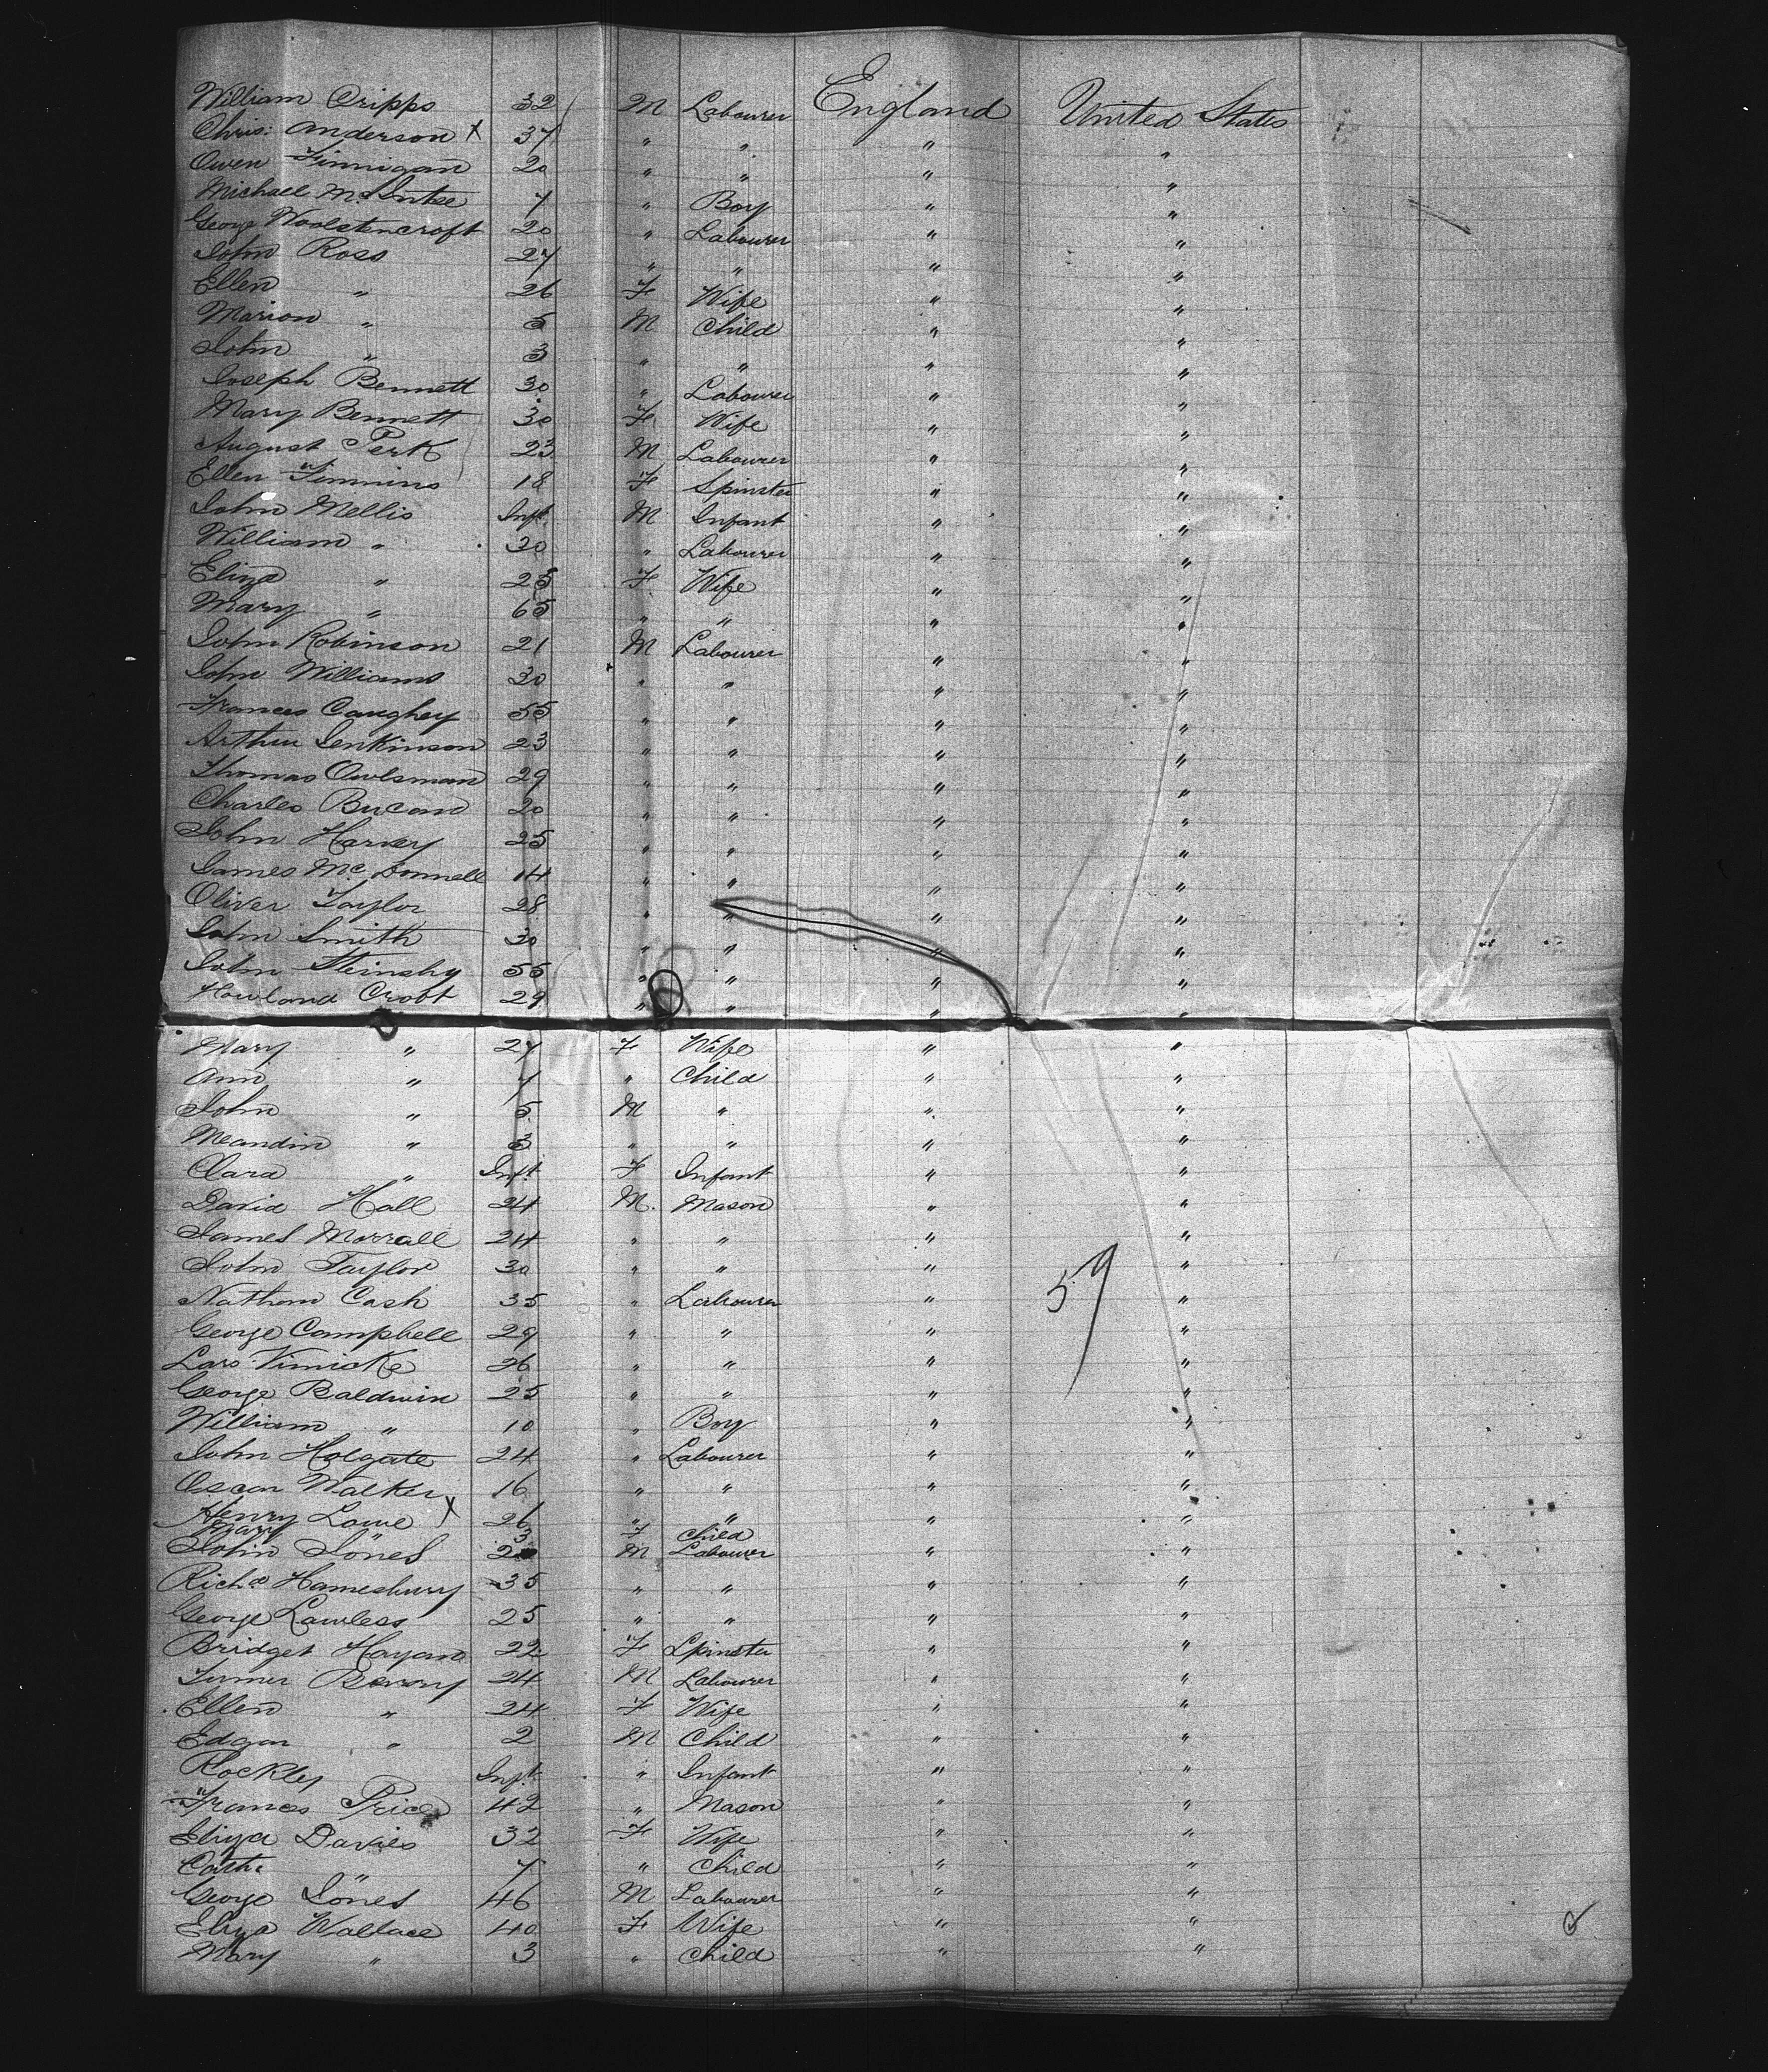 William Cripps 32 M Labourer England United States
Chris: Anderson X 37 " " " "
Owen Finnigan 20 " " " "
Michael McEntee 7 " Boy " "
George Woolstencroft 20 " Labourer " "
John Ross 27 " " " "
Ellen " 26 F Wife " "
Marion " 5 M Child " "
John " 3 " " " "
Joseph Bennett 30 " Labourer " "
Mary Bennett 30 F Wife " "
August Perk 23 M Labourer " "
Ellen Timmins 18 F Spinster " "
John Mellis Inft. M Infant " "
William " 30 " Labourer " "
Eliza " 25 F Wife " "
Mary " 65 " " " "
John Robinson 21 M Labourer " "
John Williams 30 " " " "
Frances Caughey 55 " " " "
Arthur Jenkinson 23 " " " "
Thomas Owlsman 29 " " " "
Charles Bucan 20 " " " "
John Harvey 25 " " " "
James McDonnell 14 " " " "
Oliver Taylor 28 " " " "
John Smith 30 " " " "
John 55 " " " "
Howland Crobt 29 " " " "
Mary " 27 F Wife " "
Ann " 7 " Child " "
John " 5 M " " "
Meandin " 3 " " " "
Clara " Inft. F Infant " "
David Hall 24 M. Mason " "
James Morrall 24 " " " "
John Taylor 30 " " " "
Nathan Cash 35 " Labourer " 59 "
George Campbell 29 " " " "
Lars Vinicke 26 " " " "
George Baldwin 25 " " " "
William " 10 " Boy " "
John Holgate 24 " Labourer " "
Oscar Walker 16 " " " "
Henry Lowe X 26 " " " "
Mary " 3 F Child
John Jones 2 M Labourer " "
Richd Hamesbury 35 " " " "
George Lawless 25 " " " "
Bridget Hayan 22 F Spinster " "
Turner Berry 24 M Labourer " "
Ellen " 24 F Wife " "
Edgar " 2 M Child " "
Rockley Inft. " Infant " "
Frances Price 42 " Mason " "
Eliza Davies 32 F Wife " "
Cathe " 7 " Child " "
George Jones 46 M Labourer " "
Eliza Wallace 40 F Wife " "
Mary " 3 " Child " "